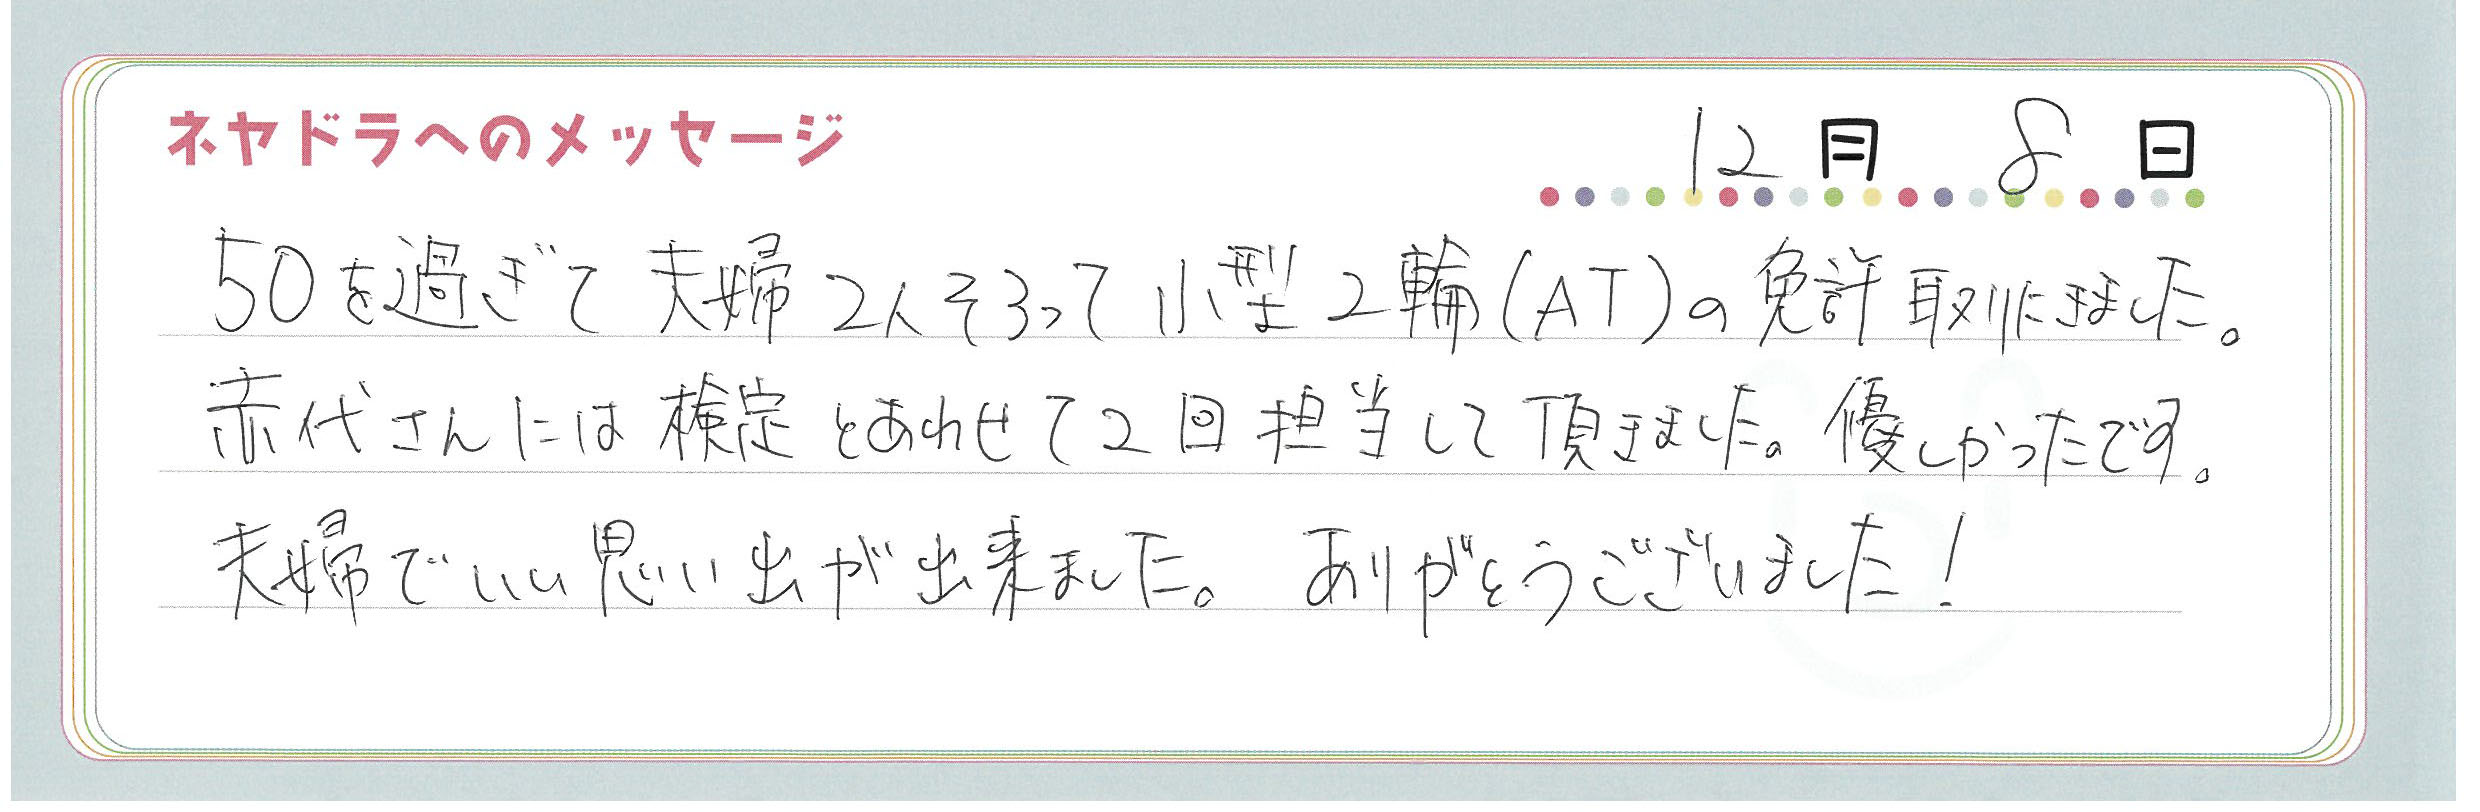 ネヤドラへのメッセージ
12月 8日
50を過ぎて夫婦2人そろって小型2輪(AT)の免許取りにきました。
赤代さんには検定とあわせて2回担当して頂きました。優しかったです。
夫婦でいい思い出が出来ました。ありがとうございました!